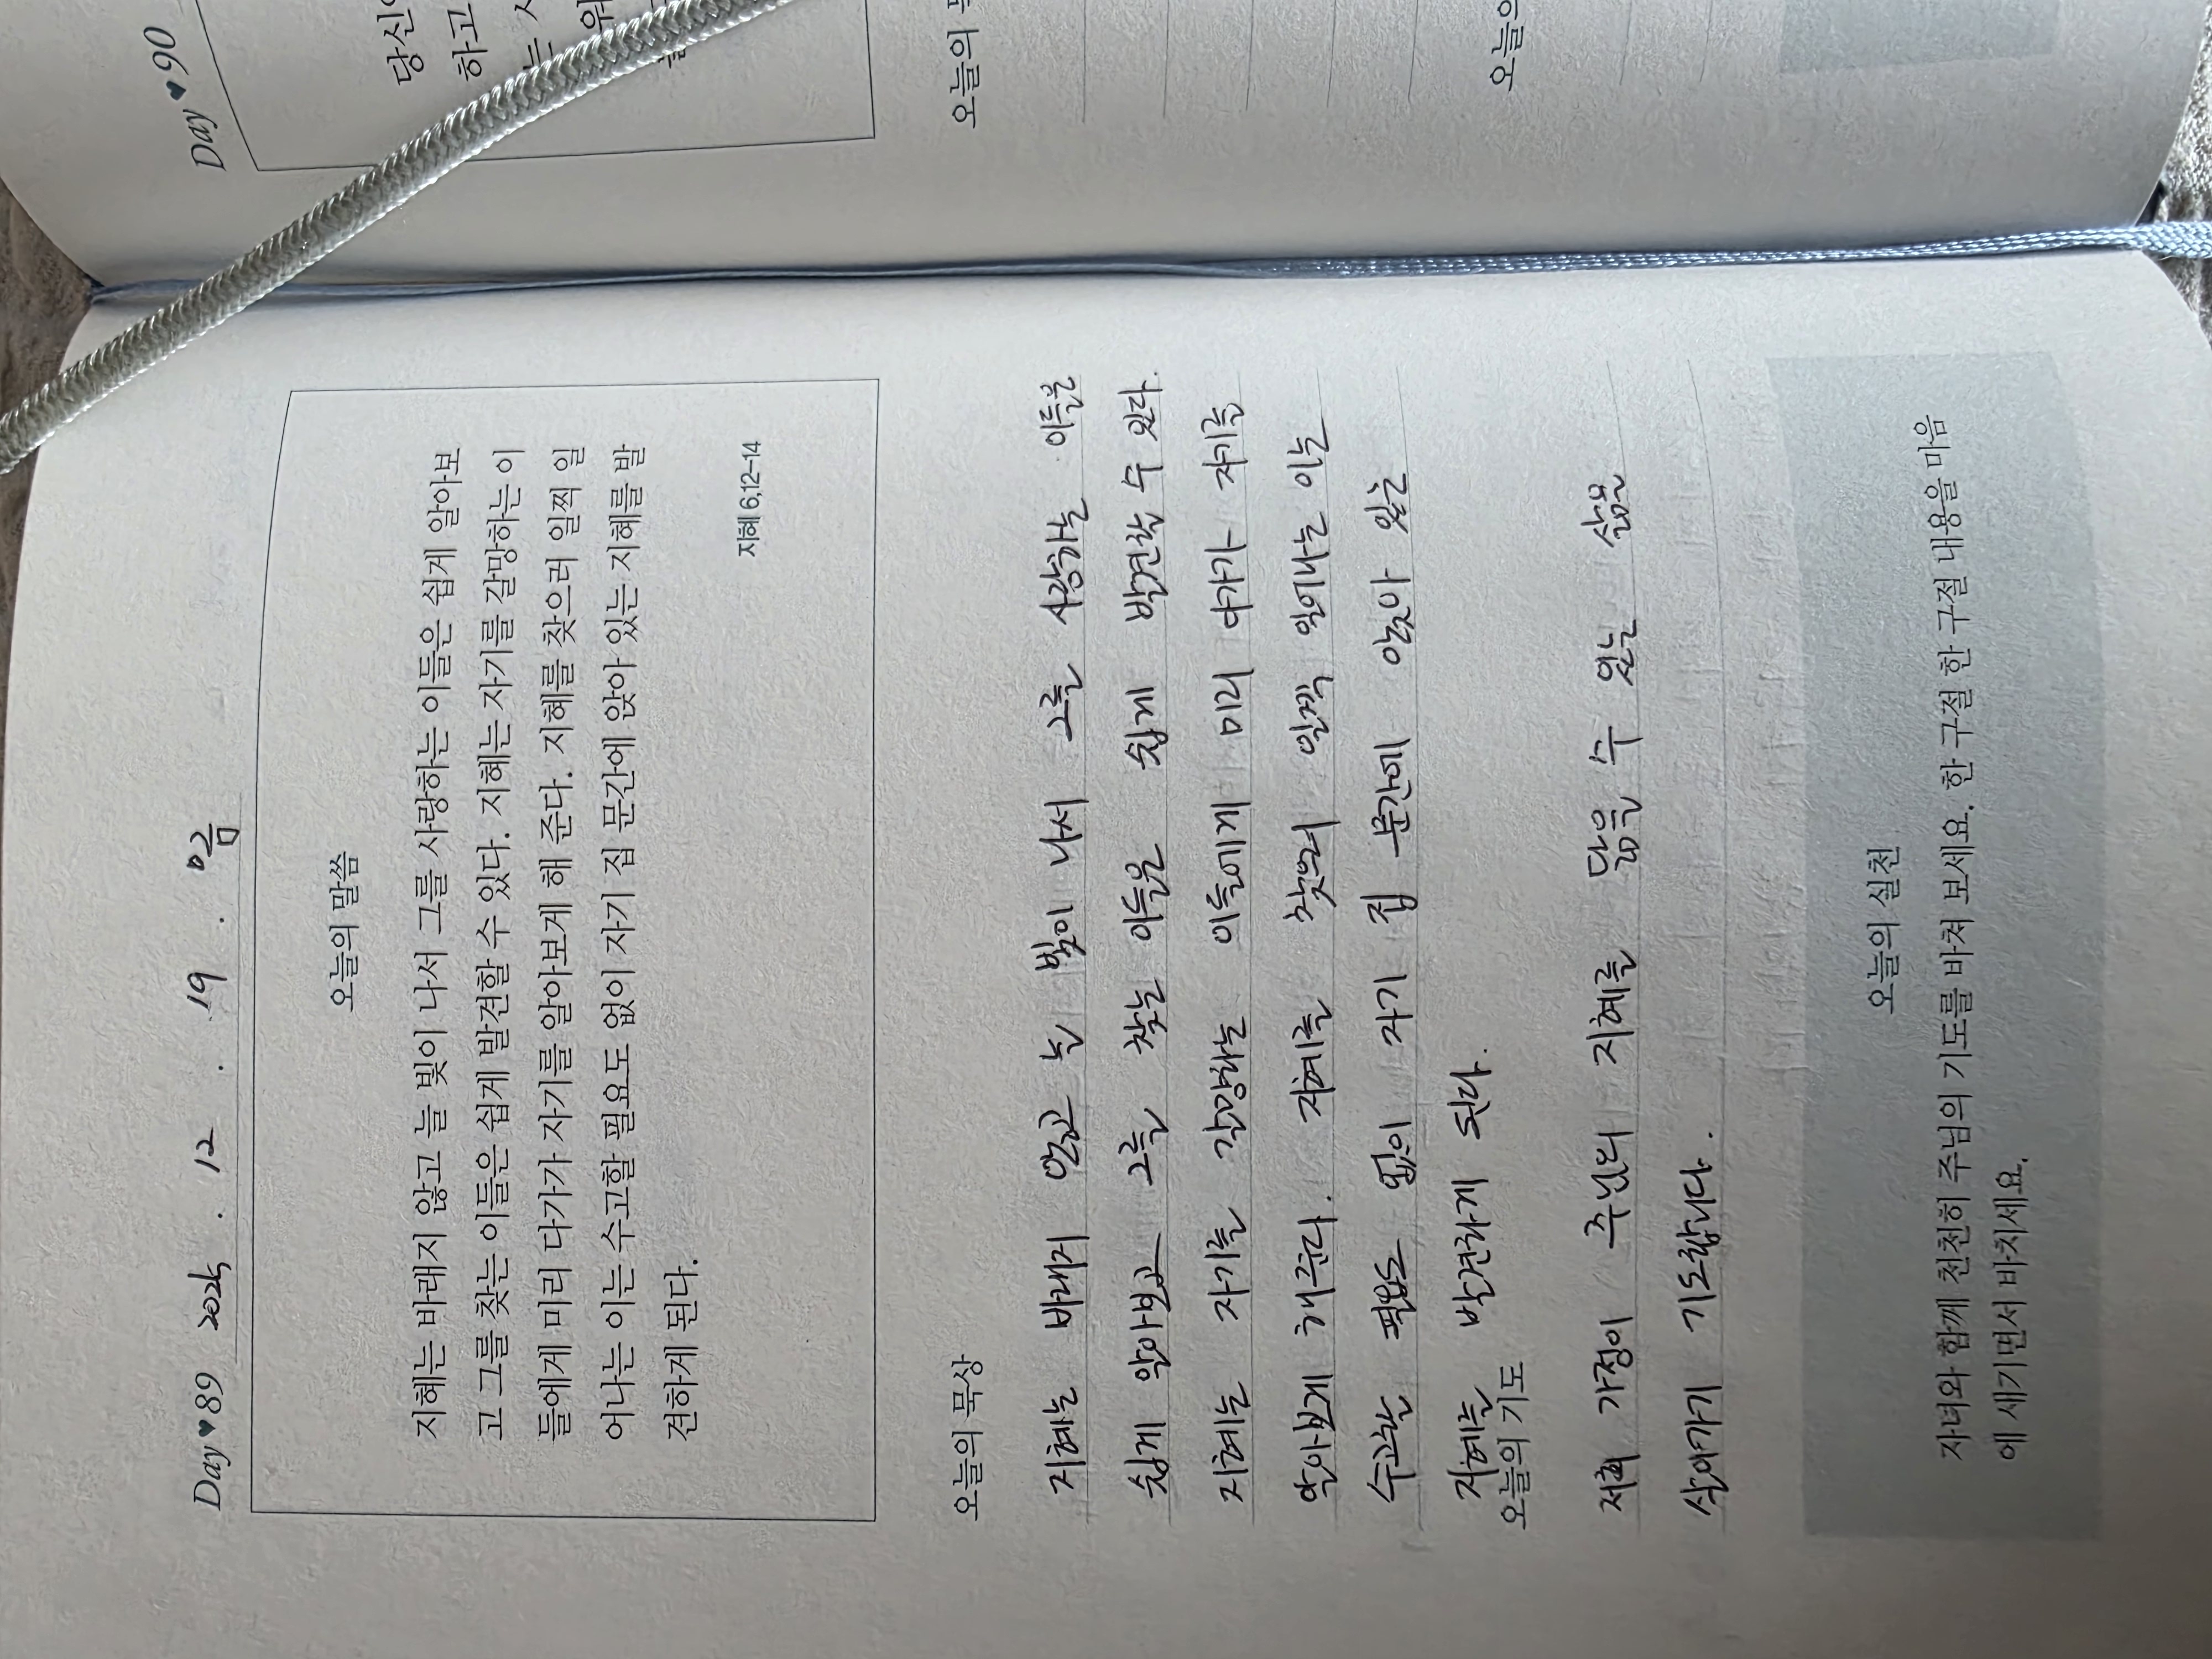 Day♥89 2025 . 12 . 19 . 금
오늘의 말씀
지혜는 바래지 않고 늘 빛이 나서 그를 사랑하는 이들은 쉽게 알아보
고 그를 찾는 이들은 쉽게 발견할 수 있다. 지혜는 자기를 갈망하는 이
들에게 미리 다가가 자기를 알아보게 해 준다. 지혜를 찾으러 일찍 일
어나는 이는 수고할 필요도 없이 자기 집 문간에 앉아 있는 지혜를 발
견하게 된다.
지혜 6,12-14
오늘의 묵상
지혜는 바래지 않고 늘 빛이 나서 그를 사랑하는 이들은
쉽게 알아보고 그를 찾는 이들은 쉽게 발견할 수 있다.
지혜는 자기를 갈망하는 이들에게 미리 다가가 자기를
알아보게 해준다. 지혜를 찾으러 일찍 일어나는 이는
수고할 필요도 없이 자기 집 문간에 앉아 있는
지혜를 발견하게 된다.
오늘의 기도
저희 가정이 주님의 지혜를 닮을 수 있는 삶을
살아가기 기도합니다.
오늘의 실천
자녀와 함께 천천히 주님의 기도를 바쳐 보세요. 한 구절 한 구절 내용을 마음
에 새기면서 바치세요.
Day♥90
당신
하고
는
위
오늘의
오늘의